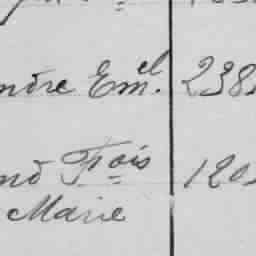 ndre Em.el 238
nd Fois 120
Marie